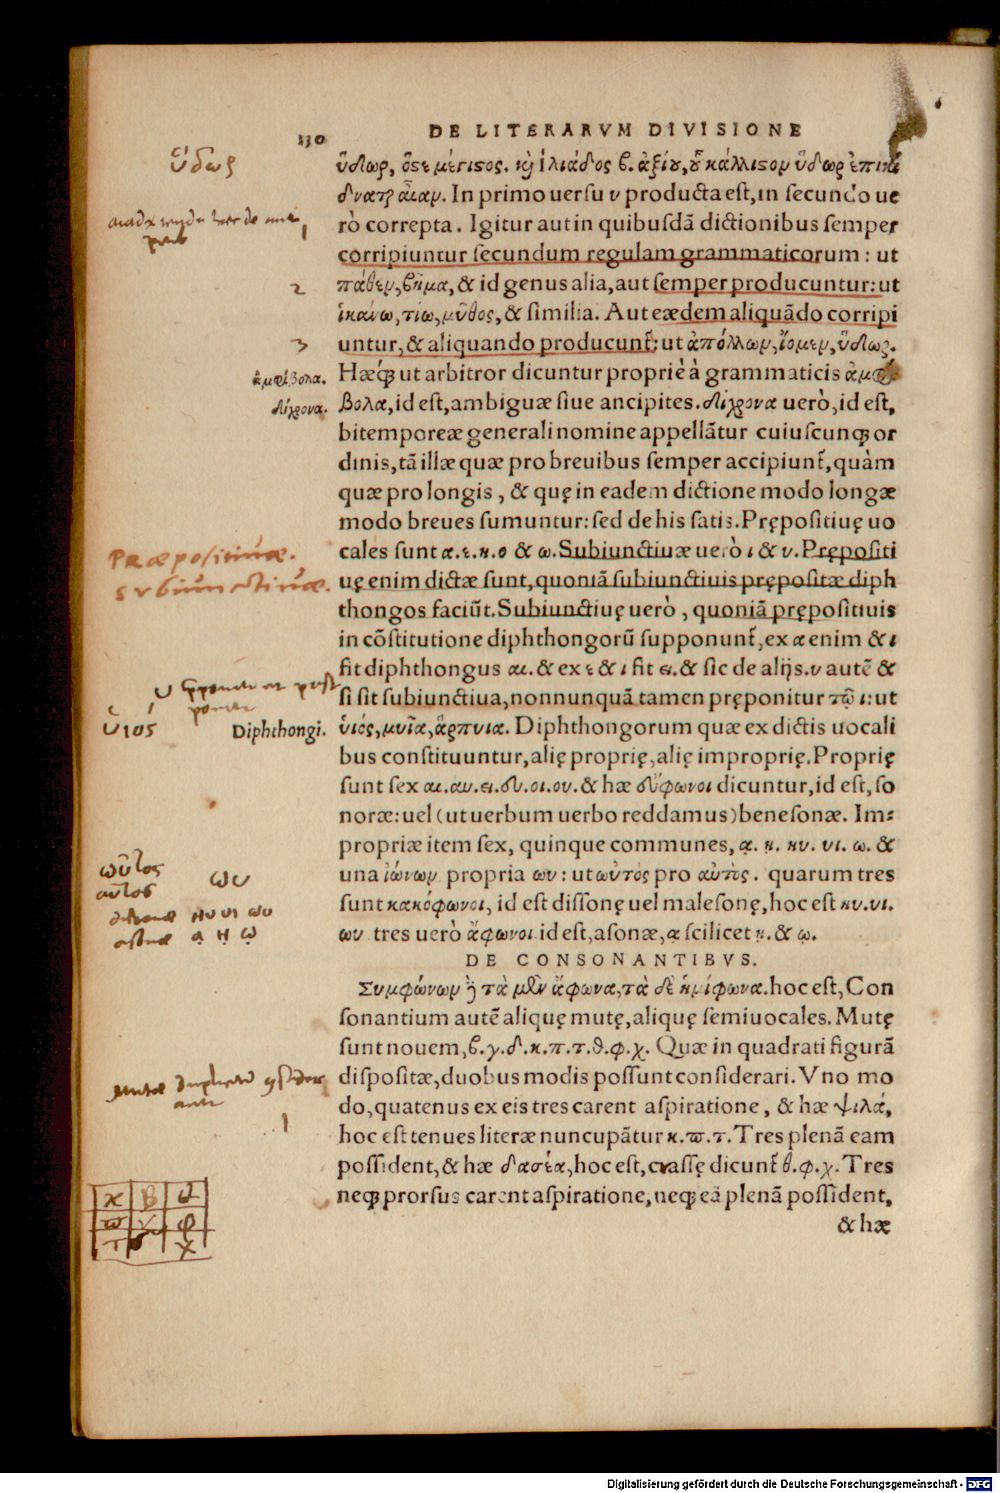 330 DE LITERARVM DIVISIONE
ὕδωρ, ὅςε μέγιςος. καὶ ἰλιάδος β. ἀξίου, οὗ κάλλιςον ὕδωρ ἐπικί
δναται αἶαν. In primo uersu υ producta est, in secundo ue
rò correpta. Igitur aut in quibusdā dictionibus semper
corripiuntur secundum regulam grammaticorum: ut
πάθεν, βῆμα, & id genus alia, aut semper producuntur: ut
ἱκάνω, τίω, μῦθος, & similia. Aut eædem aliquādo corripi
untur, & aliquando producunt᷑: ut ἀπόλλων, ἴομεν, ὕδωρ.
Hæcq; ut arbitror dicuntur propriè à grammaticis ἀμφί
βολα, id est, ambiguæ siue ancipites. δίχρονα uerò, id est,
bitemporeæ generali nomine appellātur cuiuscunq; or
dinis, tā illæ quæ pro breuibus semper accipiunt᷑, quàm
quæ pro longis, & quę in eadem dictione modo longæ
modo breues sumuntur: sed de his satis. Prępositiuę uo
cales sunt α.ε.η.ο & ω. Subiunctiuæ uerò ι & υ. Prępositi
uę enim dictæ sunt, quoniā subiunctiuis prępositæ diph
thongos faciūt. Subiunctiuę uerò, quoniā prępositiuis
in cōstitutione diphthongorū supponunt᷑, ex α enim & ι
fit diphthongus αι. & ex ε & ι fit ει. & sic de alijs. υ autē &
si sit subiunctiua, nonnunquā tamen pręponitur τῷ ι: ut
ὑιός, μυῖα, ἅρπυια. Diphthongorum quæ ex dictis uocali
bus constituuntur, alię proprię, alię improprię. Proprię
sunt sex αι.αυ.ει.ευ.οι.ου. & hæ εὔφωνοι dicuntur, id est, so
noræ: uel (ut uerbum uerbo reddamus) benesonæ. Im=
propriæ item sex, quinque communes, ᾳ. ῃ. ηυ. υι. ῳ. &
una ἰώνων propria ωυ: ut ωὐτὸς pro αὐτὸς. quarum tres
sunt κακόφωνοι, id est dissonę uel malesonę, hoc est ηυ.υι.
ωυ tres uerò ἄφωνοι id est, asonæ, ᾳ scilicet ῃ. & ῳ.
DE CONSONANTIBVS.
Συμφώνων ἢ τὰ μὲν ἄφωνα, τὰ δὲ ἡμίφωνα. hoc est, Con
sonantium autē alique mutę, alique semiuocales. Mutę
sunt nouem, β.γ.δ.κ.π.τ.θ.φ.χ. Quæ in quadrati figurā
dispositæ, duobus modis possunt considerari. Vno mo
do, quatenus ex eis tres carent aspiratione, & hæ ψιλά,
hoc est tenues literæ nuncupātur κ.ϖ.τ. Tres plenā eam
possident, & hæ δασέα, hoc est, crassę dicunt᷑ θ.φ.χ. Tres
neq; prorsus carent aspiratione, neq; eā plenā possident,
& hæ
ὕδωρ
1
2
3
ἀμφίβολα.
δίχρονα.
Præpositiuæ.
Subiunctiuæ.
ὑιός
Diphthongi.
ωὐτος
αὐτος
ωυ
ηυ υι ωυ
ᾳ ῃ ῳ
1
κ β θ
ϖ γ φ
τ δ χ
Digitalisierung gefördert durch die Deutsche Forschungsgemeinschaft - DFG